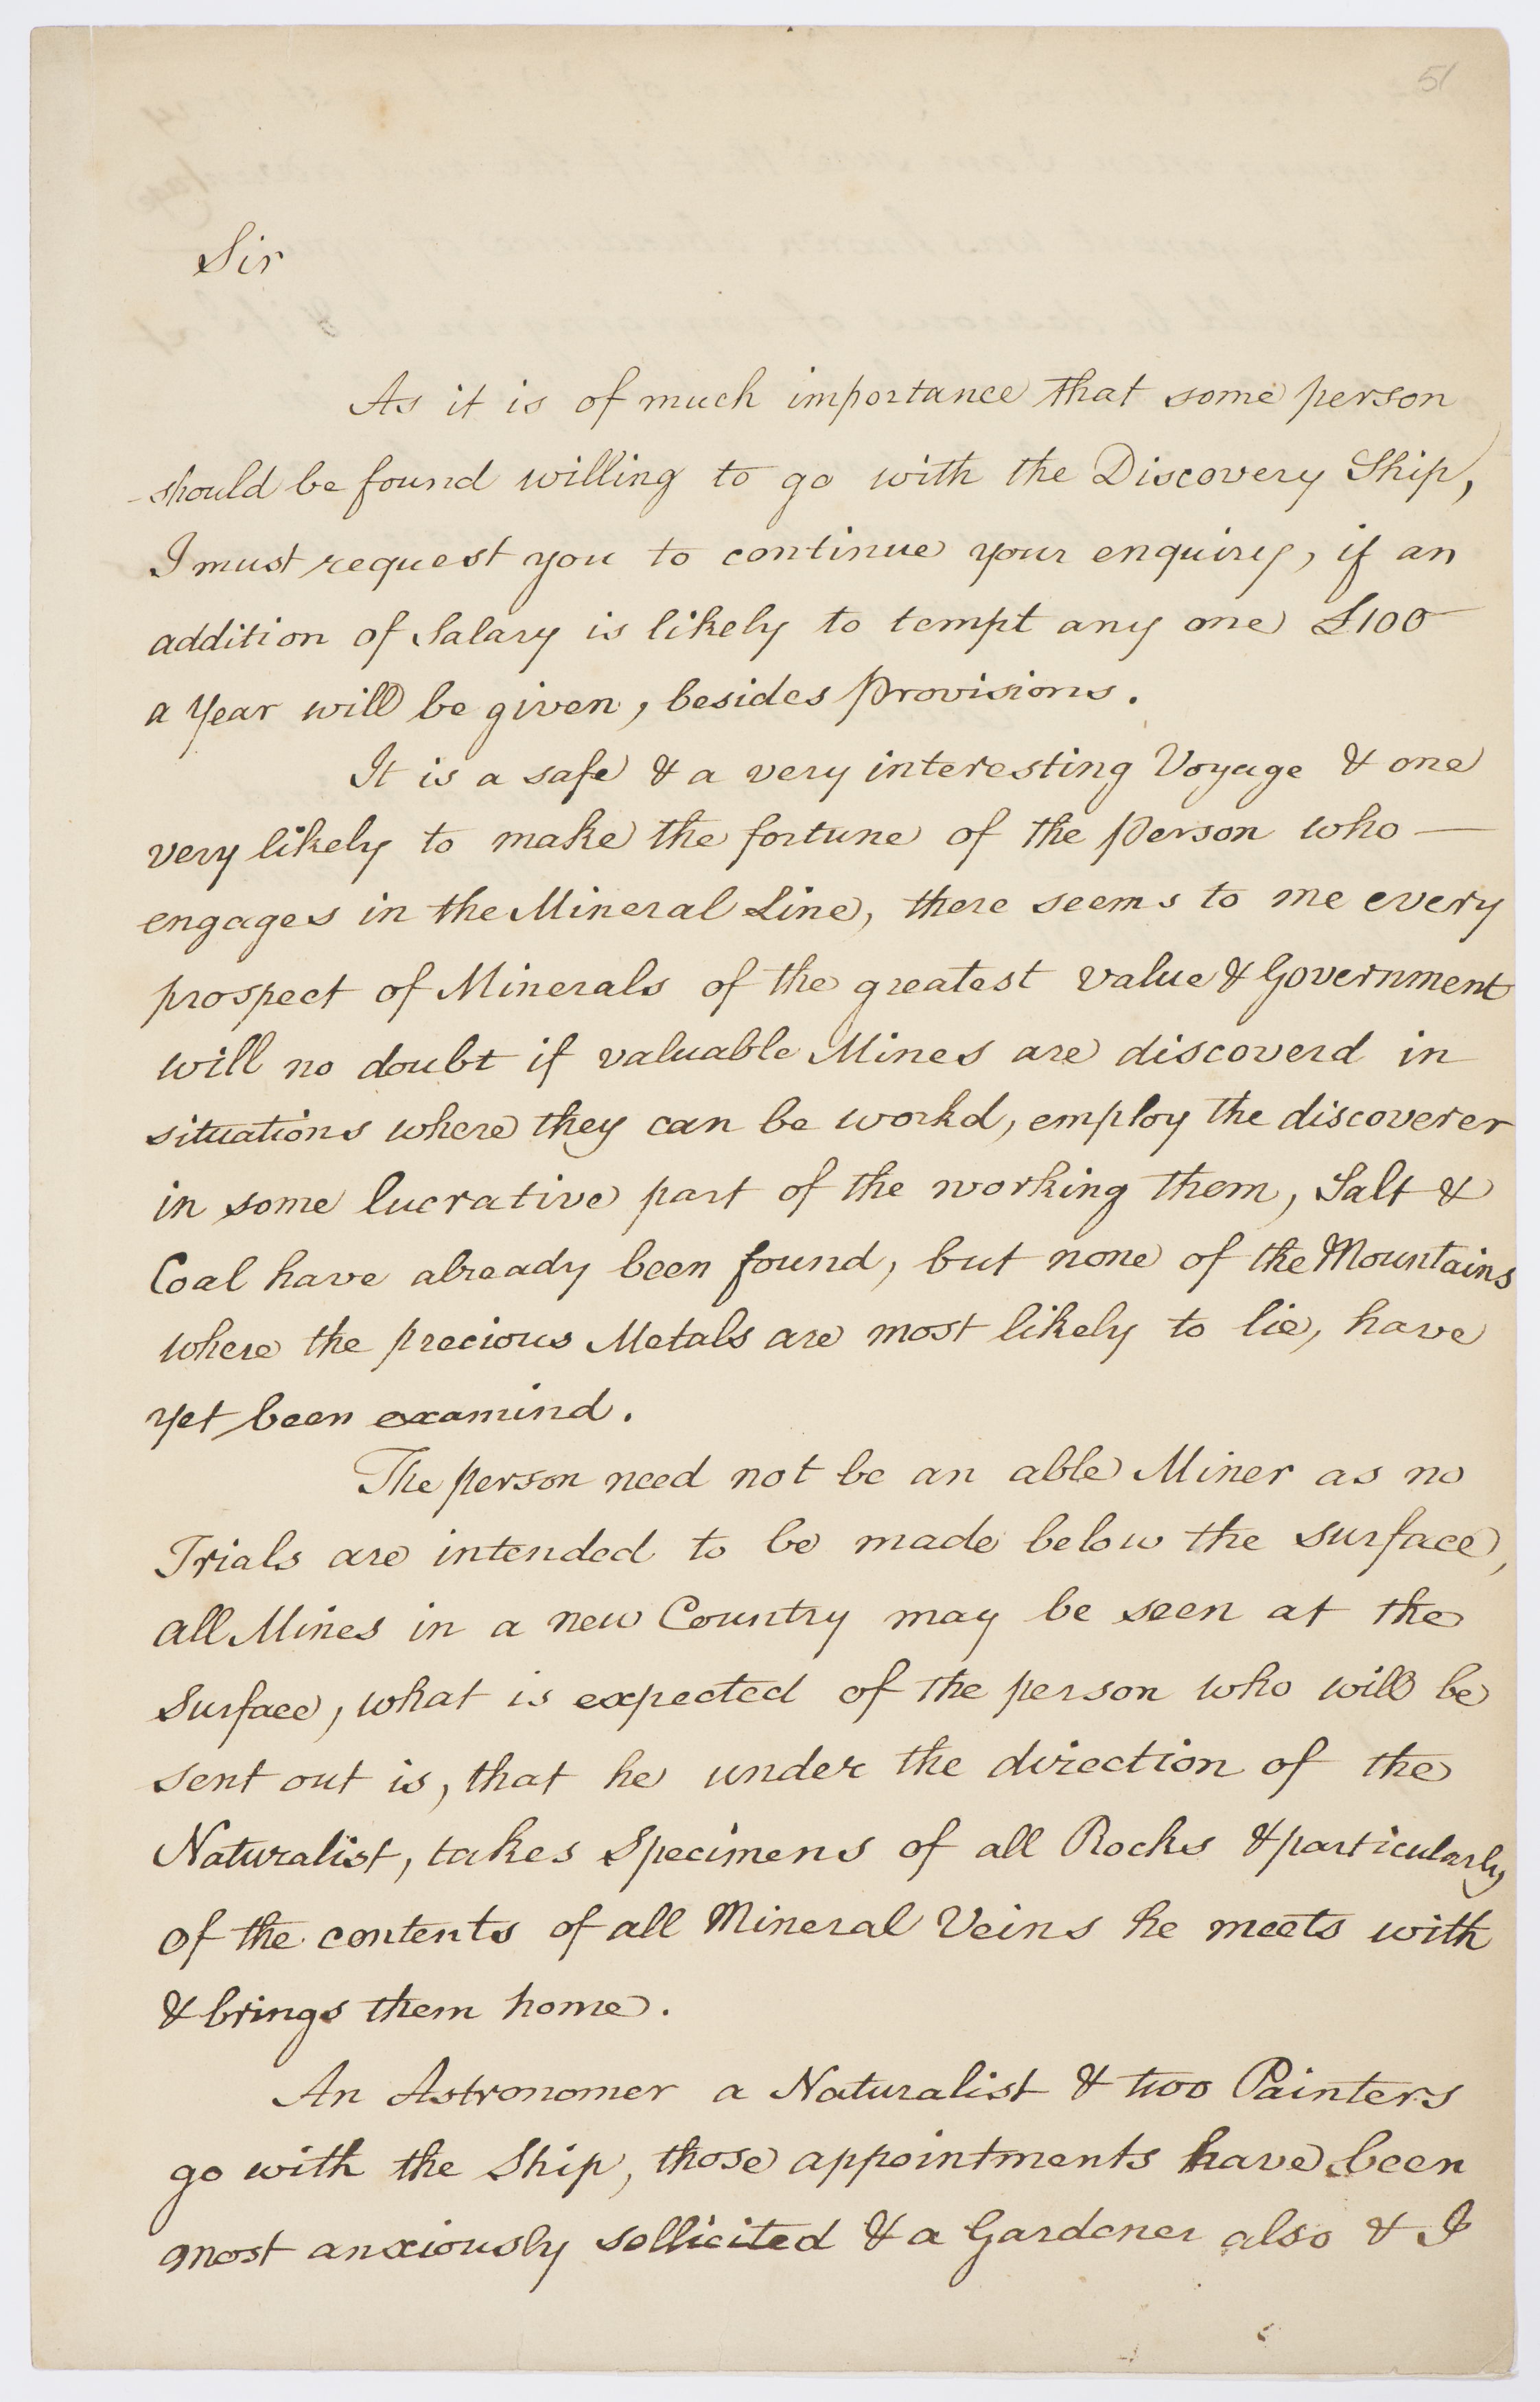 51
Sir
As it is of much importance that some person
should be found willing to go with the Discovery Ship,
I must request you to continue your enquiry, if an
addition of Salary is likely to tempt any one £100
a Year will be given, besides Provisions.
It is a safe & a very interesting Voyage & one
very likely to make the fortune of the Person who —
engages in the Mineral Line, there seems to me every
prospect of Minerals of the greatest value & Government
will no doubt if valuable Mines are discoverd in
situations where they can be workd, employ the discoverer
in some lucrative part of the working them, Salt &
Coal have already been found, but none of the Mountains
where the precious Metals are most likely to lie, have
yet been examind.
The person need not be an able Miner as no
Trials are intended to be made below the surface,
all Mines in a new Country may be seen at the
Surface, what is expected of the person who will be
sent out is, that he under the direction of the
Naturalist, takes Specimens of all Rocks & particularly
of the contents of all Mineral Veins he meets with
& brings them home.
An Astronomer a Naturalist & two Painters
go with the Ship, those appointments have been
most anxiously sollicited & a Gardener also & I